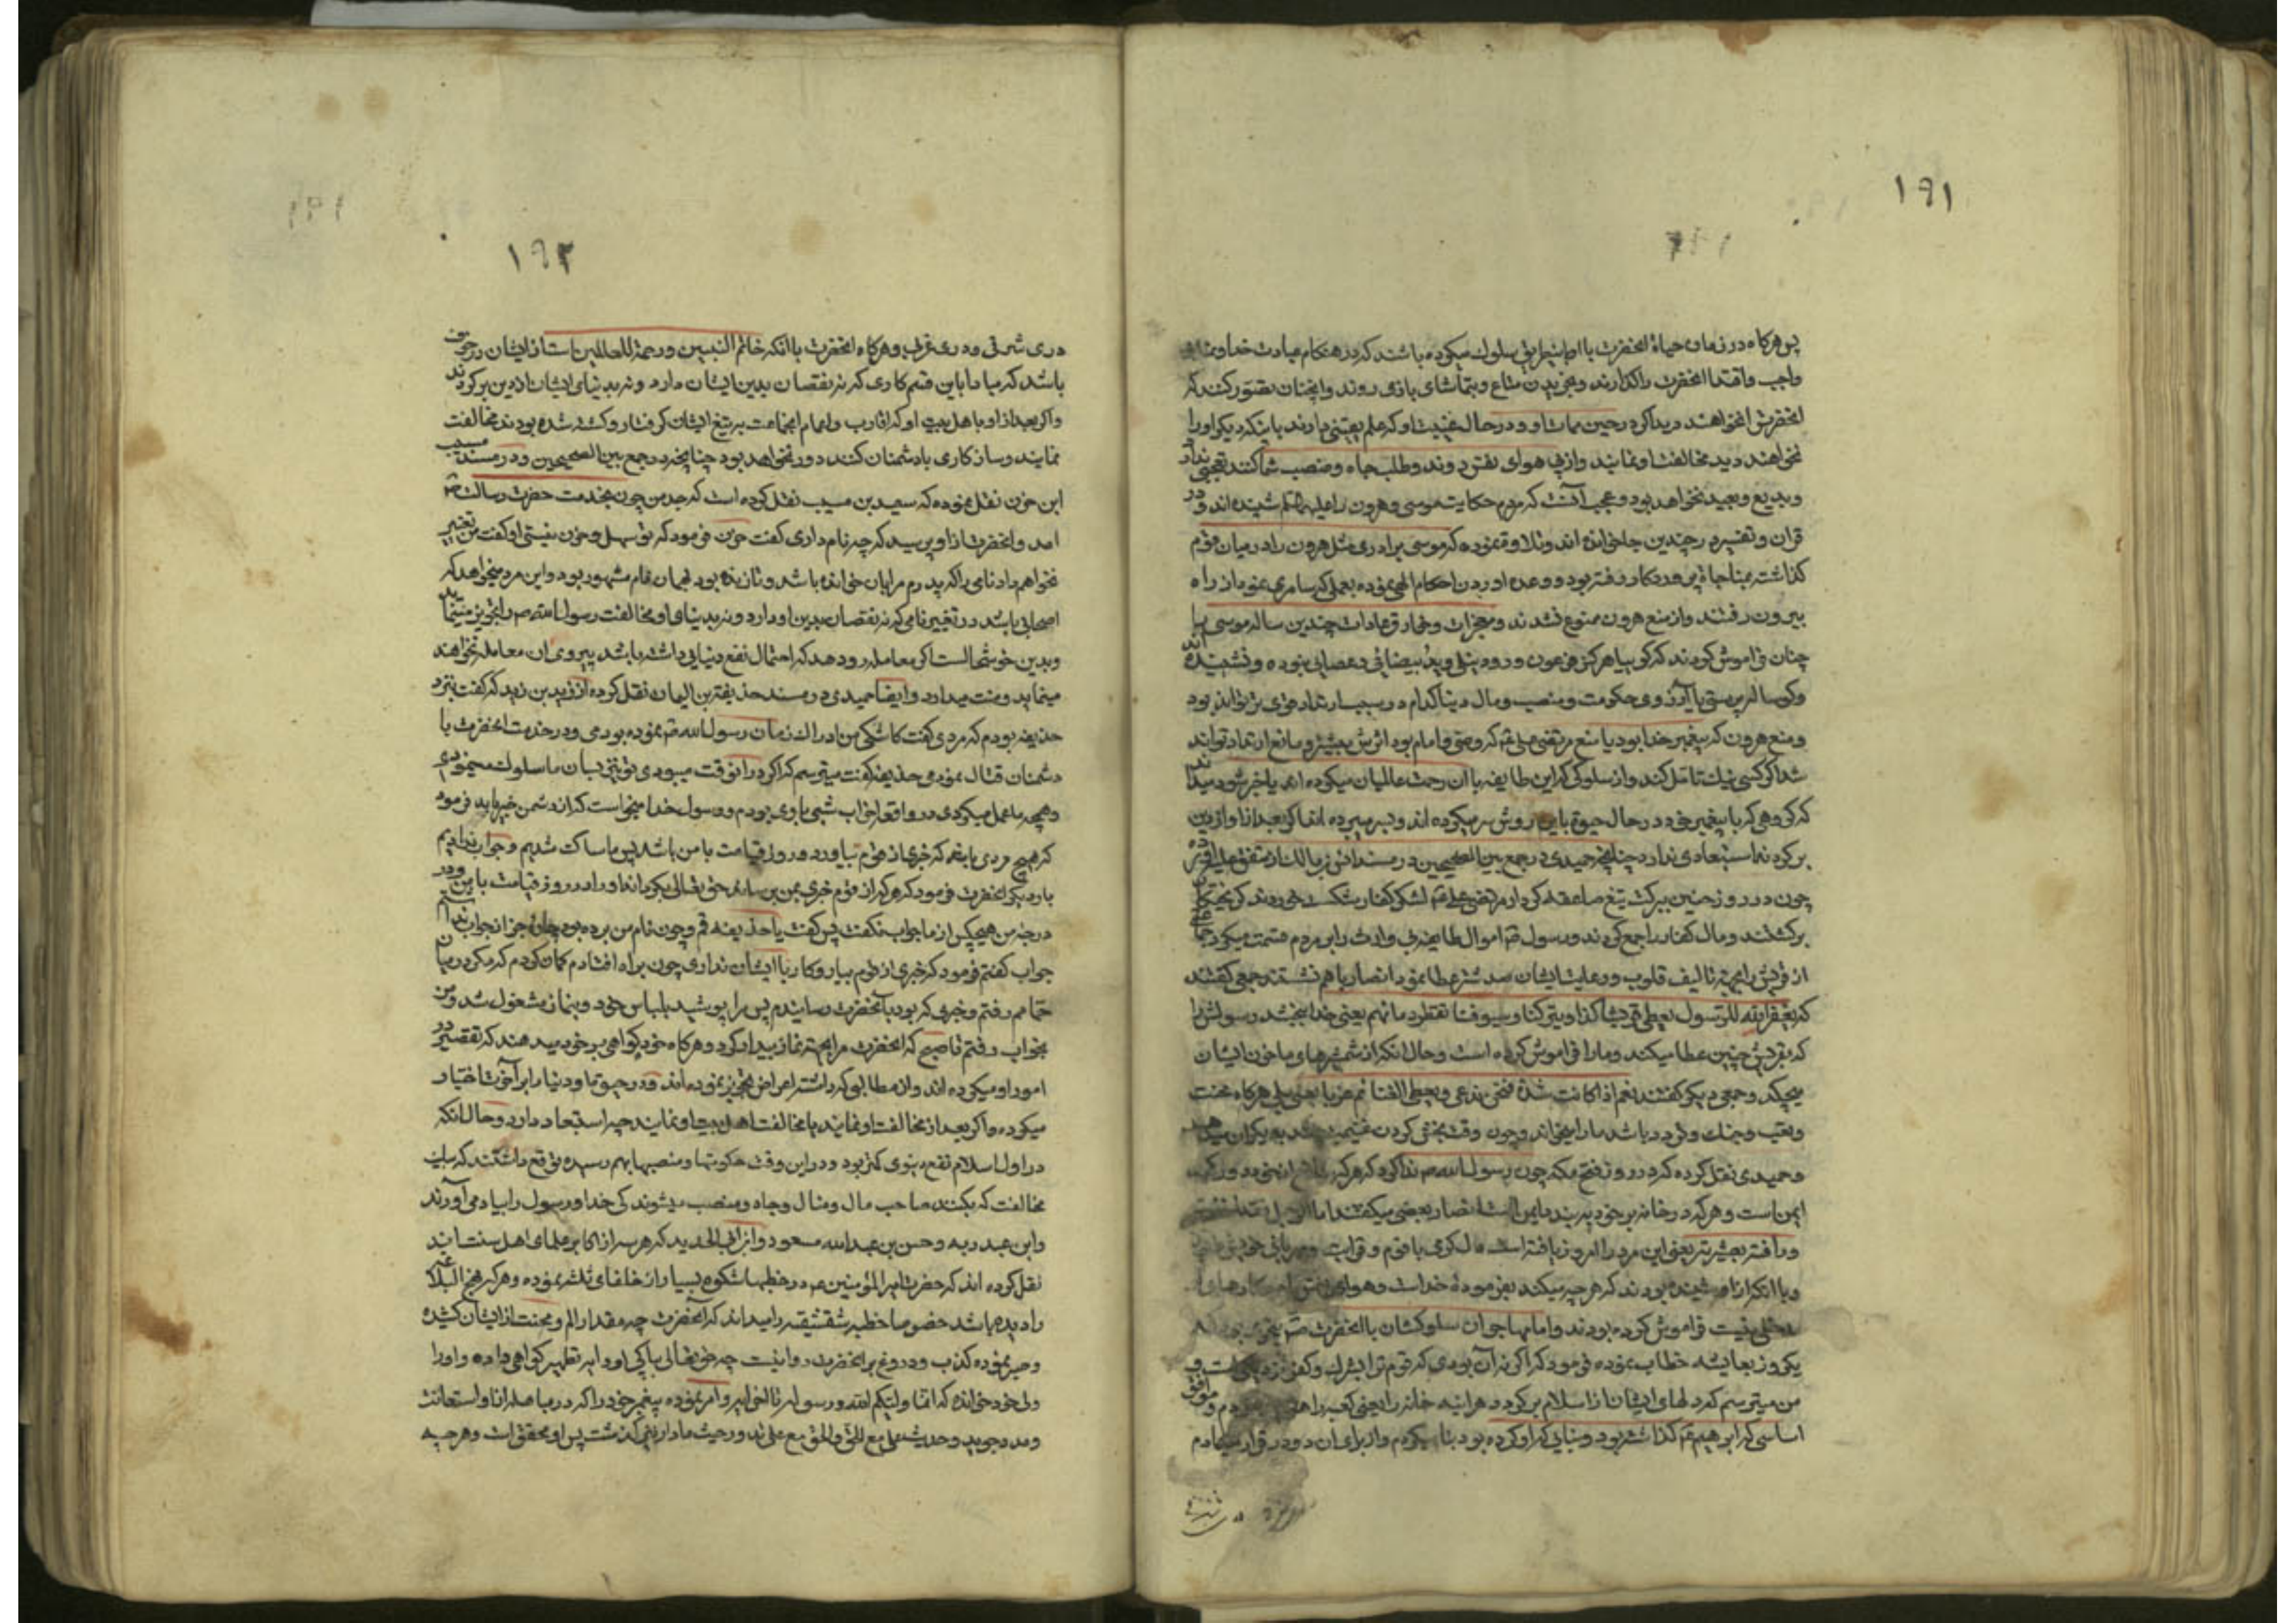 ۱۹۱
پس هرکاه در زمان حیاة انحضرت با او باینطریق سلوك میکرده باشند که در هنکام عبادت خدا و نماز
واجب واقتدا انحضرت را کذارند وبخریدن متاع وبتماشای بازی روند وانچنان تصور کنند که
انحضرت انخواهند دید اکر در حین ممات او و در حال غیبت او که علم یقینی دارند باینکه دیکر او را
نخواهند دید مخالفت او نمایند وازپی هوای نفس روند وطلب جاه ومنصب شما کنند تعجبی ندارد
وبدیع وبعید نخواهد بود وعجب آنست که مردم حکایت موسی وهرون را علیهما السلم شنیده اند ودر
قران وتفسیر در چندین جا خوانده اند وتلاوة نموده که موسی برادری مثل هرون را در میان قوم
کذاشته بمناجاة پروردکار رفته بود ووعده اوردن احکام الهی نموده بعملی که سامری نمود از راه
بیرون رفتند واز منع هرون ممنوع نشدند ومعجزات وخارق عادات چندین ساله موسی را
چنان فراموش کردند که کویا هرکز فرعون ورود نیل وید بیضائی وعصایی نبوده ونشنیده اند
وکوساله پرستی یا آرزوی حکومت ومنصب ومال دنیا کدام در سبب ارتداد قوی تر تواند بود
ومنع هرون که پیغمبر خدا بود یا منع مرتضی علی ع که وصی وامام بود اثرش بیشتر ومانع ارتداد تواند
شد اکر کسی نیك تامل کند واز سلوکی که این طایفه با ان رحمت عالمیان میکرده اند باخبر شود میداند
که کروهی که با پیغمبر خود در حال حیوة باین روش سر میکرده اند وبسر میبرده اند اکر بعد از او از دین
برکردند استبعادی ندارد چنانچه حمیدی در جمع بین الصحیحین در مسند انس بن مالك از متفق علیه اورده
چون در روز حنین ببرکت تیغ صاعقه کردار مرتضی علی ع لشکر کفار شکست خوردند کریختکان
برکشتند ومال کفار را جمع کردند ورسول ص اموال طایفه بی وارث را بر مردم قسمت میکرد جماعتی
از قریش را بجهة تالیف قلوب ورعایت ایشان صد شتر عطا نمود انصار باهم نشستند جمعی کفتند
که یغفر الله لرسول یعطی قریشا کذا ویترکنا وسیوفنا تقطر دمائهم یعنی خدا ببخشد رسولش را
که بقریش چنین عطا میکند وما را فراموش کرده است وحال انکه از شمشیرهای ما خون ایشان
میچکد وجمعی دیکر کفتند نعم اذا کانت شدة فنحن ندعی ویعطی الغنائم غیرنا یعنی بلی هرکاه محنت
وتعب وجنك وخورد باشد ما را میخوانند وچون وقت بخش کردن غنیمت شد بدیکران میدهند
وحمیدی نقل کرده که در روز فتح مکه چون رسول الله ص ندا کرد که هرکه سلاح از خود دور کند
ایمن است وهرکه در خانه بر خود ببندد ایمن است انصار بعضی میکفتند اما الرجل فقد اخذته
ورأفة بعشیرته یعنی این مرد را امروز یافته است میل کردن با قوم وقرابت ومهربانی خویشان
وبا انکه از او شنیده بودند که هرچه میکند بفرموده خداست وهوای نفس را در کارهای او
دخلی نیست فراموش کرده بودند واما مهاجران سلوکشان با انحضرت ص بنحوی بود که
یکروز بعایشه خطاب نموده فرمود که اکر نه آن بودی که قوم تو بشرك وکفر نزدیك است و
من میترسم که دلهای ایشان از اسلام برکردد هراینه خانه را یعنی کعبه را هدم میکردم وموافق
اساسی که ابرهیم ع کذاشته بود وبنایی که او کرده بود بنا میکردم واز برای ان دو در قرار میدادم
۱۹۲
دری شرقی ودری غربی وهرکاه انحضرت با انکه خاتم النبیین ورحمة للعالمین است از ایشان در خوف
باشد که مبادا باین قسم کاری که نه نقصان بدین ایشان دارد ونه بدنیای ایشان از دین برکردند
واکر بعد از او با اهل بیت او که اقارب واعمام انجماعت به تیغ ایشان کرفتار وکشته شده بودند مخالفت
نمایند وسازکاری با دشمنان کنند دور نخواهد بود چنانچه در جمع بین الصحیحین ودر مسند مسیب
ابن حزن نقل نموده که سعید بن مسیب نقل کرده است که جد من چون بخدمت حضرت رسالت ص
امد وانحضرت از او پرسید که چه نام داری کفت حزن فرمود که تو سهل وحزن نیستی او کفت من تغییر
نخواهم داد نامی را که پدرم مرا بان خوانده باشد وتا زنده بود بهمان نام مشهور بود واین مرد میخواهد که
اصحابی باشد در تغییر نامی که نه نقصان بدین او دارد ونه بدنیای او مخالفت رسول الله ص را تجویز مینماید
وبدین خوشحالست اکر معامله رو دهد که احتمال نفع دنیایی داشته باشد پیروی ان معامله نخواهند
مینماید ومنت میدارد وایضا حمیدی در مسند حذیفة بن الیمان نقل کرده از زید بن زید که کفت نزد
حذیفه بودم که مردی کفت کاشکی من ادراك زمان رسول الله ص نموده بودمی ودر خدمت انحضرت با
دشمنان قتال نمودمی حذیفه کفت میترسم که اکر در انوقت میبودی تو نیز بسان ما سلوك مینمودی
وهمچه ما عمل میکردی در واقعه احزاب شبی با وی بودم ورسول خدا میخواست که از دشمن خبر یابد فرمود
که هیچ مردی باشد که خبری از قوم بیاورد وروز قیامت با من باشد پس ما ساکت شدیم وجواب ندادیم
بار دیکر انحضرت فرمود که هرکه از قوم خبری بمن برساند حق تعالی بکرداند او را در روز قیامت با من ودر
درجه من هیچکس از ما جواب نکفت پس کفت یا حذیفه قم وچون نام من برده بود چاره جز از جواب نداشتم
جواب کفتم فرمود که خبری از قوم بیار وکار با ایشان نداری چون براه افتادم کمان کردم که مکر در میان
حمامم رفتم وخبری که بود بآنحضرت رسانیدم پس مرا پوشید بلباس خود وبنماز مشغول شد ومن
بخواب رفتم تا صبح که انحضرت مرا بجهة نماز بیدار کرد وهرکاه خود کواهی بر خود میدهند که تقصیر در
امور او میکرده اند واز مطالبی که داشته اعراض تجویز نموده اند ودر حیوة او دنیا را بر آخرت اختیار
میکرده واکر بعد از مخالفت او نمایند یا مخالفت اهل بیت او نمایند چه استبعاد دارد وحال انکه
در اول اسلام نفع دنیوی کمتر بود ودر این وقت حکومتها ومنصبها بهم رسیده توقع داشتند که باین
مخالفت که بکنند صاحب مال ومنال وجاه ومنصب میشوند کی خدا ورسول را بیاد می آورند
وابن عبد ربه وحسن بن عبدالله مسعود وابن ابی الحدید که هر سه از اکابر علمای اهل سنت اند
نقل کرده اند که حضرت امیر المؤمنین ع در خطبها شکوه بسیار از خلفای ثلثه نموده وهرکه نهج البلاغه
را دیده باشد خصوصا خطبه شقشقیه را میداند که آنحضرت چه مقدار الم ومحنت از ایشان کشیده
وصبر نموده کذب ودروغ بر انحضرت روا نیست چه حق تعالی بپاکی او در ایه تطهیر کواهی داده واو را
ولی خود خوانده که انما ولیکم الله ورسوله تا اخر ایه وامر نموده پیغمبر خود را که در مباهله از او استعانت
ومدد جوید وحدیث علی مع الحق والحق مع علی ند ورحیث ما دار نیز کذشت پس او محقق است وهرچه